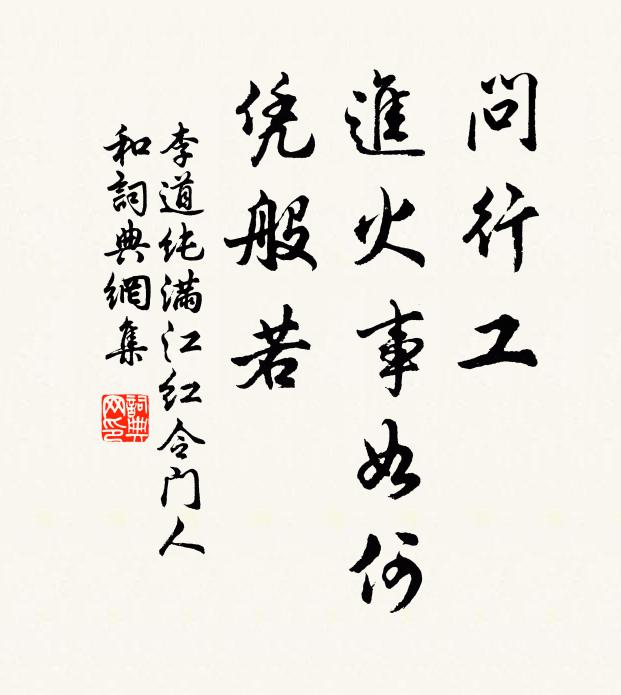 問行工
進火事如何
凭般若
李道纯满江红令门人
和詞典網集
詞典网印